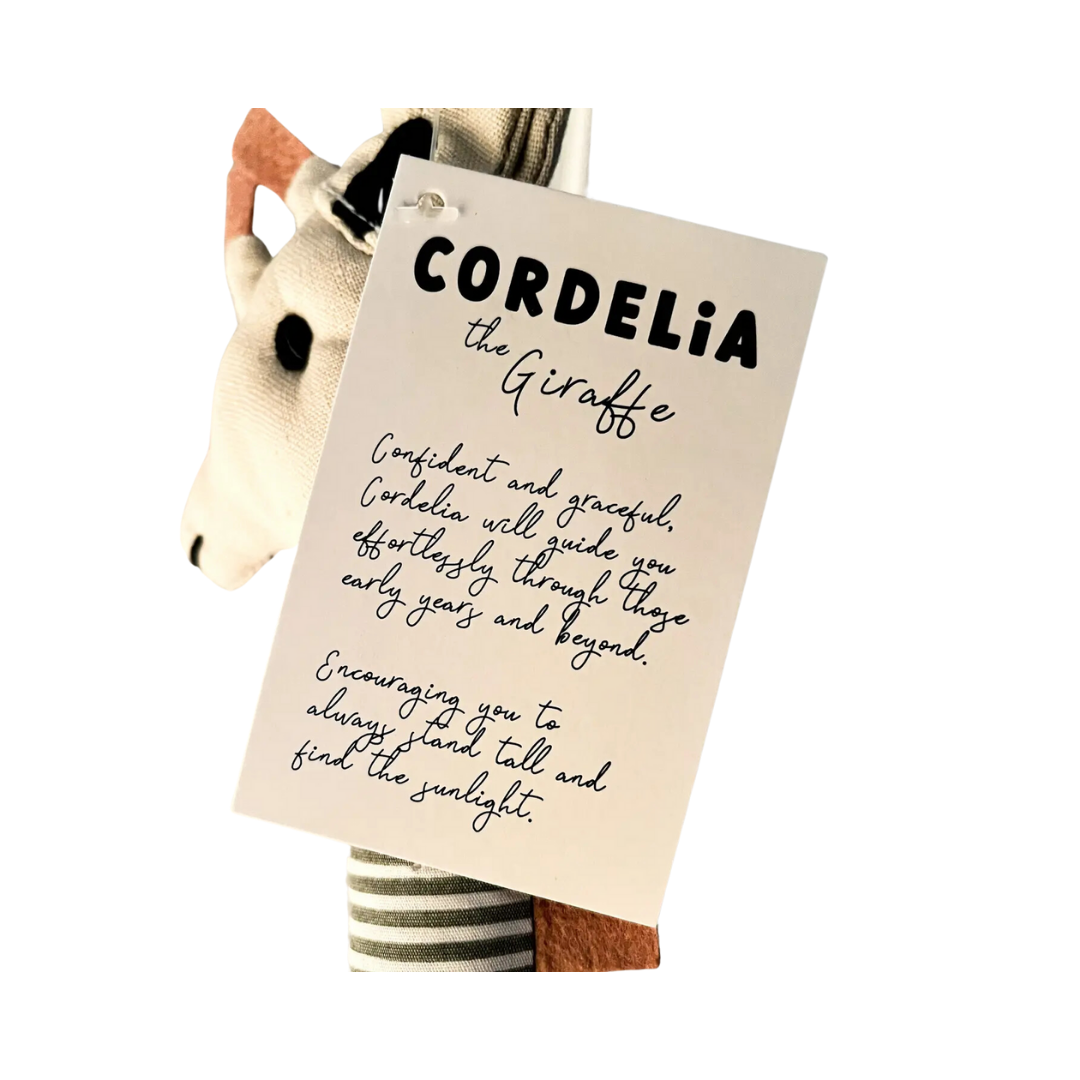 CORDELiA
the
Giraffe
Confident and graceful,
Cordelia will guide you
effortlessly through those
early years and beyond.
Encouraging you to
always stand tall and
find the sunlight.